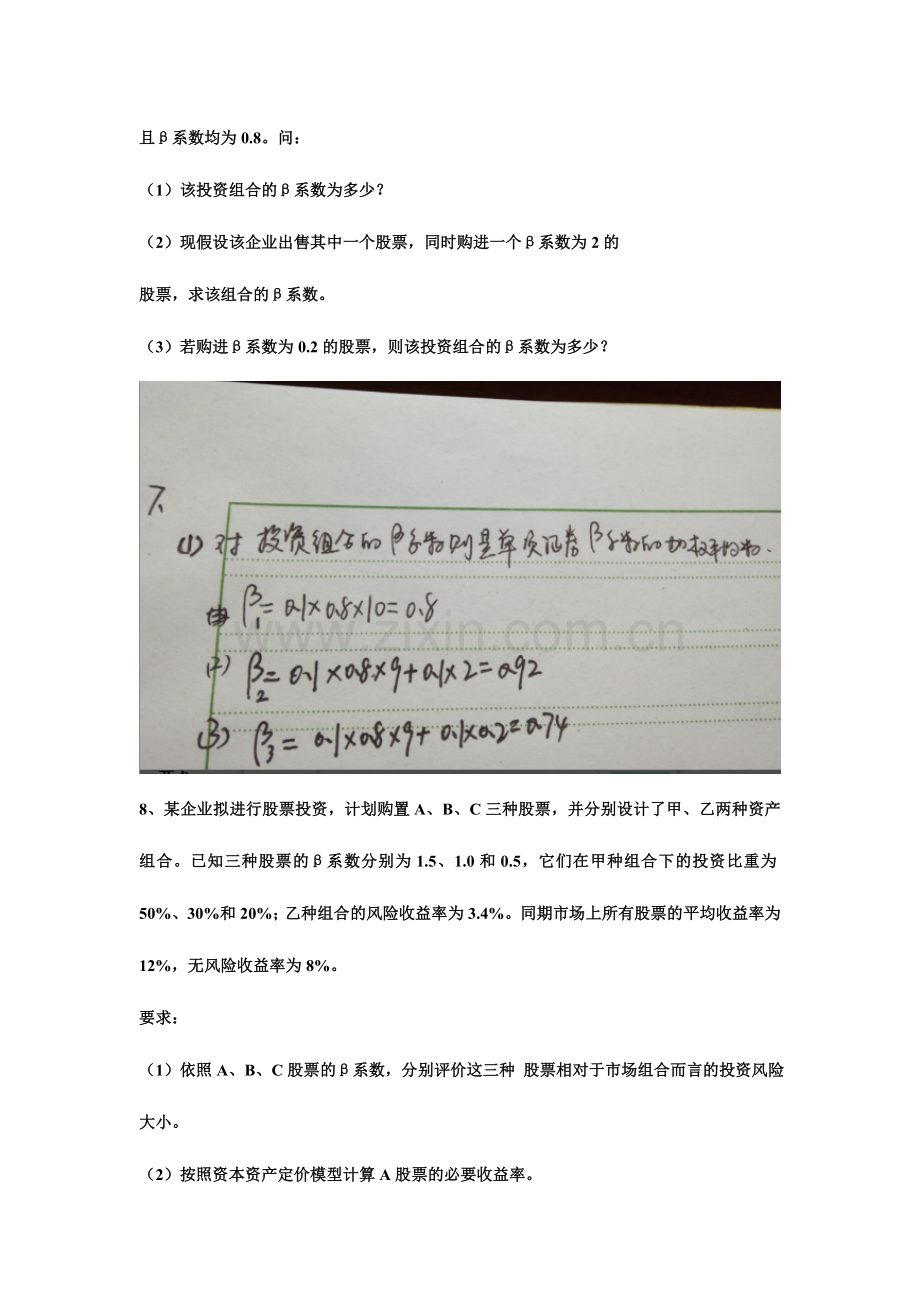 且β系数均为0.8。问：
（1）该投资组合的β系数为多少？
（2）现假设该企业出售其中一个股票，同时购进一个β系数为2的
股票，求该组合的β系数。
（3）若购进β系数为0.2的股票，则该投资组合的β系数为多少？
7、
(1) 对投资组合的β系数则是单项证券β系数的加权平均数.
β₁=0.1×0.8×10=0.8
www.zixin.com.cn
(2) β₂=0.1×0.8×9+0.1×2=0.92
(3) β₃=0.1×0.8×9+0.1×0.2=0.74
8、某企业拟进行股票投资，计划购置A、B、C三种股票，并分别设计了甲、乙两种资产
组合。已知三种股票的β系数分别为1.5、1.0和0.5，它们在甲种组合下的投资比重为
50%、30%和20%；乙种组合的风险收益率为3.4%。同期市场上所有股票的平均收益率为
12%，无风险收益率为8%。
要求：
（1）依照A、B、C股票的β系数，分别评价这三种 股票相对于市场组合而言的投资风险
大小。
（2）按照资本资产定价模型计算A股票的必要收益率。